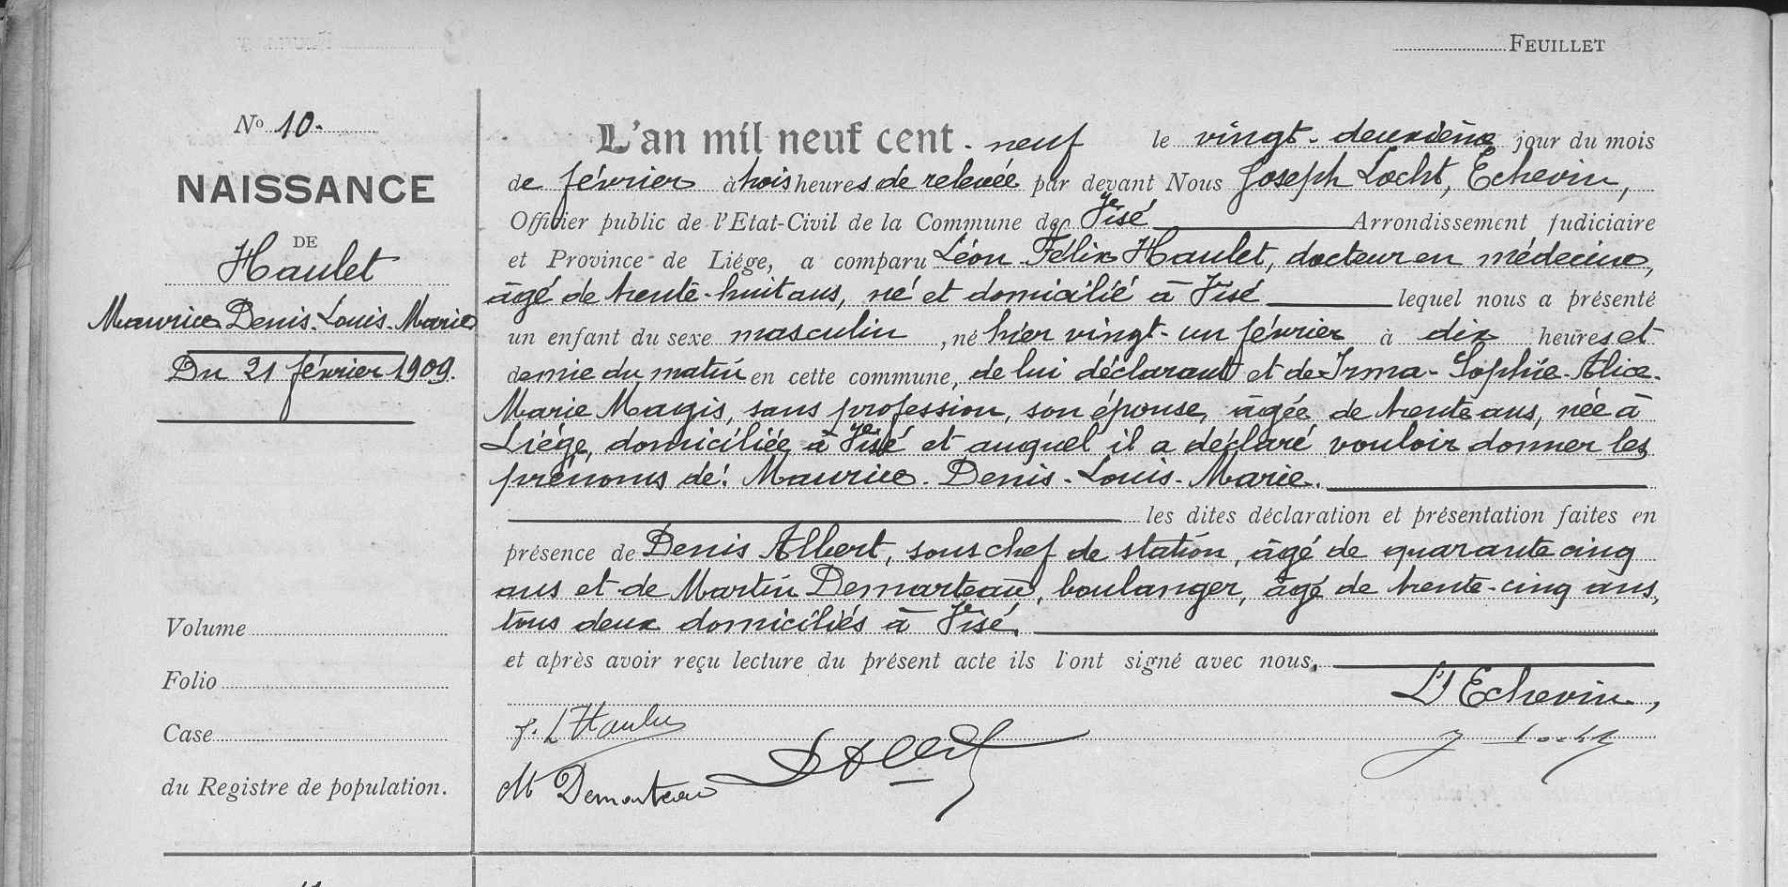 FEUILLET
No 10.
NAISSANCE
DE
Haulet
Maurice Denis-Louis-Marie
Du 21 février 1909.
Volume
Folio
Case
du Registre de population.
L'an mil neuf cent - neuf le vingt-deuxième jour du mois
de février à trois heures de relevée par devant Nous Joseph Locht, Echevin,
Officier public de l'Etat-Civil de la Commune de Visé Arrondissement judiciaire
et Province de Liége, a comparu Léon-Félix Haulet, docteur en médecine,
âgé de trente-huit ans, né et domicilié à Visé lequel nous a présenté
un enfant du sexe masculin, né hier vingt-un février à dix heures et
demie du matin en cette commune, de lui déclarant et de Irma-Sophie-Alice-
Marie Magis, sans profession, son épouse, âgée de trente ans, née à
Liége, domiciliée à Visé et auquel il a déclaré vouloir donner les
prénoms de: Maurice-Denis-Louis-Marie.
les dites déclaration et présentation faites en
présence de Denis Albert, sous chef de station, âgé de quarante cinq
ans et de Martin Demarteau, boulanger, âgé de trente-cinq ans,
tous deux domiciliés à Visé.
et après avoir reçu lecture du présent acte ils l'ont signé avec nous.
L'Echevin,
L Haulet
D Albert
J Locht
M Demarteau